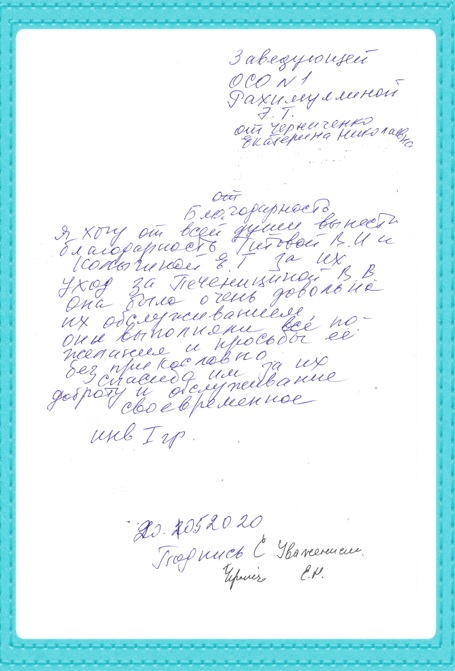 Заведующей
ОСО №1
Рахимуллиной
Э.Т.
от Черниченко
Екатерина Николаевна
от
Благодарность
Я хочу от всей души вынести
благодарность Титовой В.И и
Е.Т за их
уход за Печенициной В.В
Она была очень довольна
их обслуживанием
они выполняли всё по-
желания и просьбы её
без прикословно
Спасиба им за их
доброту и обслуживание
своевременное
инв I гр.
2052020
Подпись С Уважением.
Е.Н.